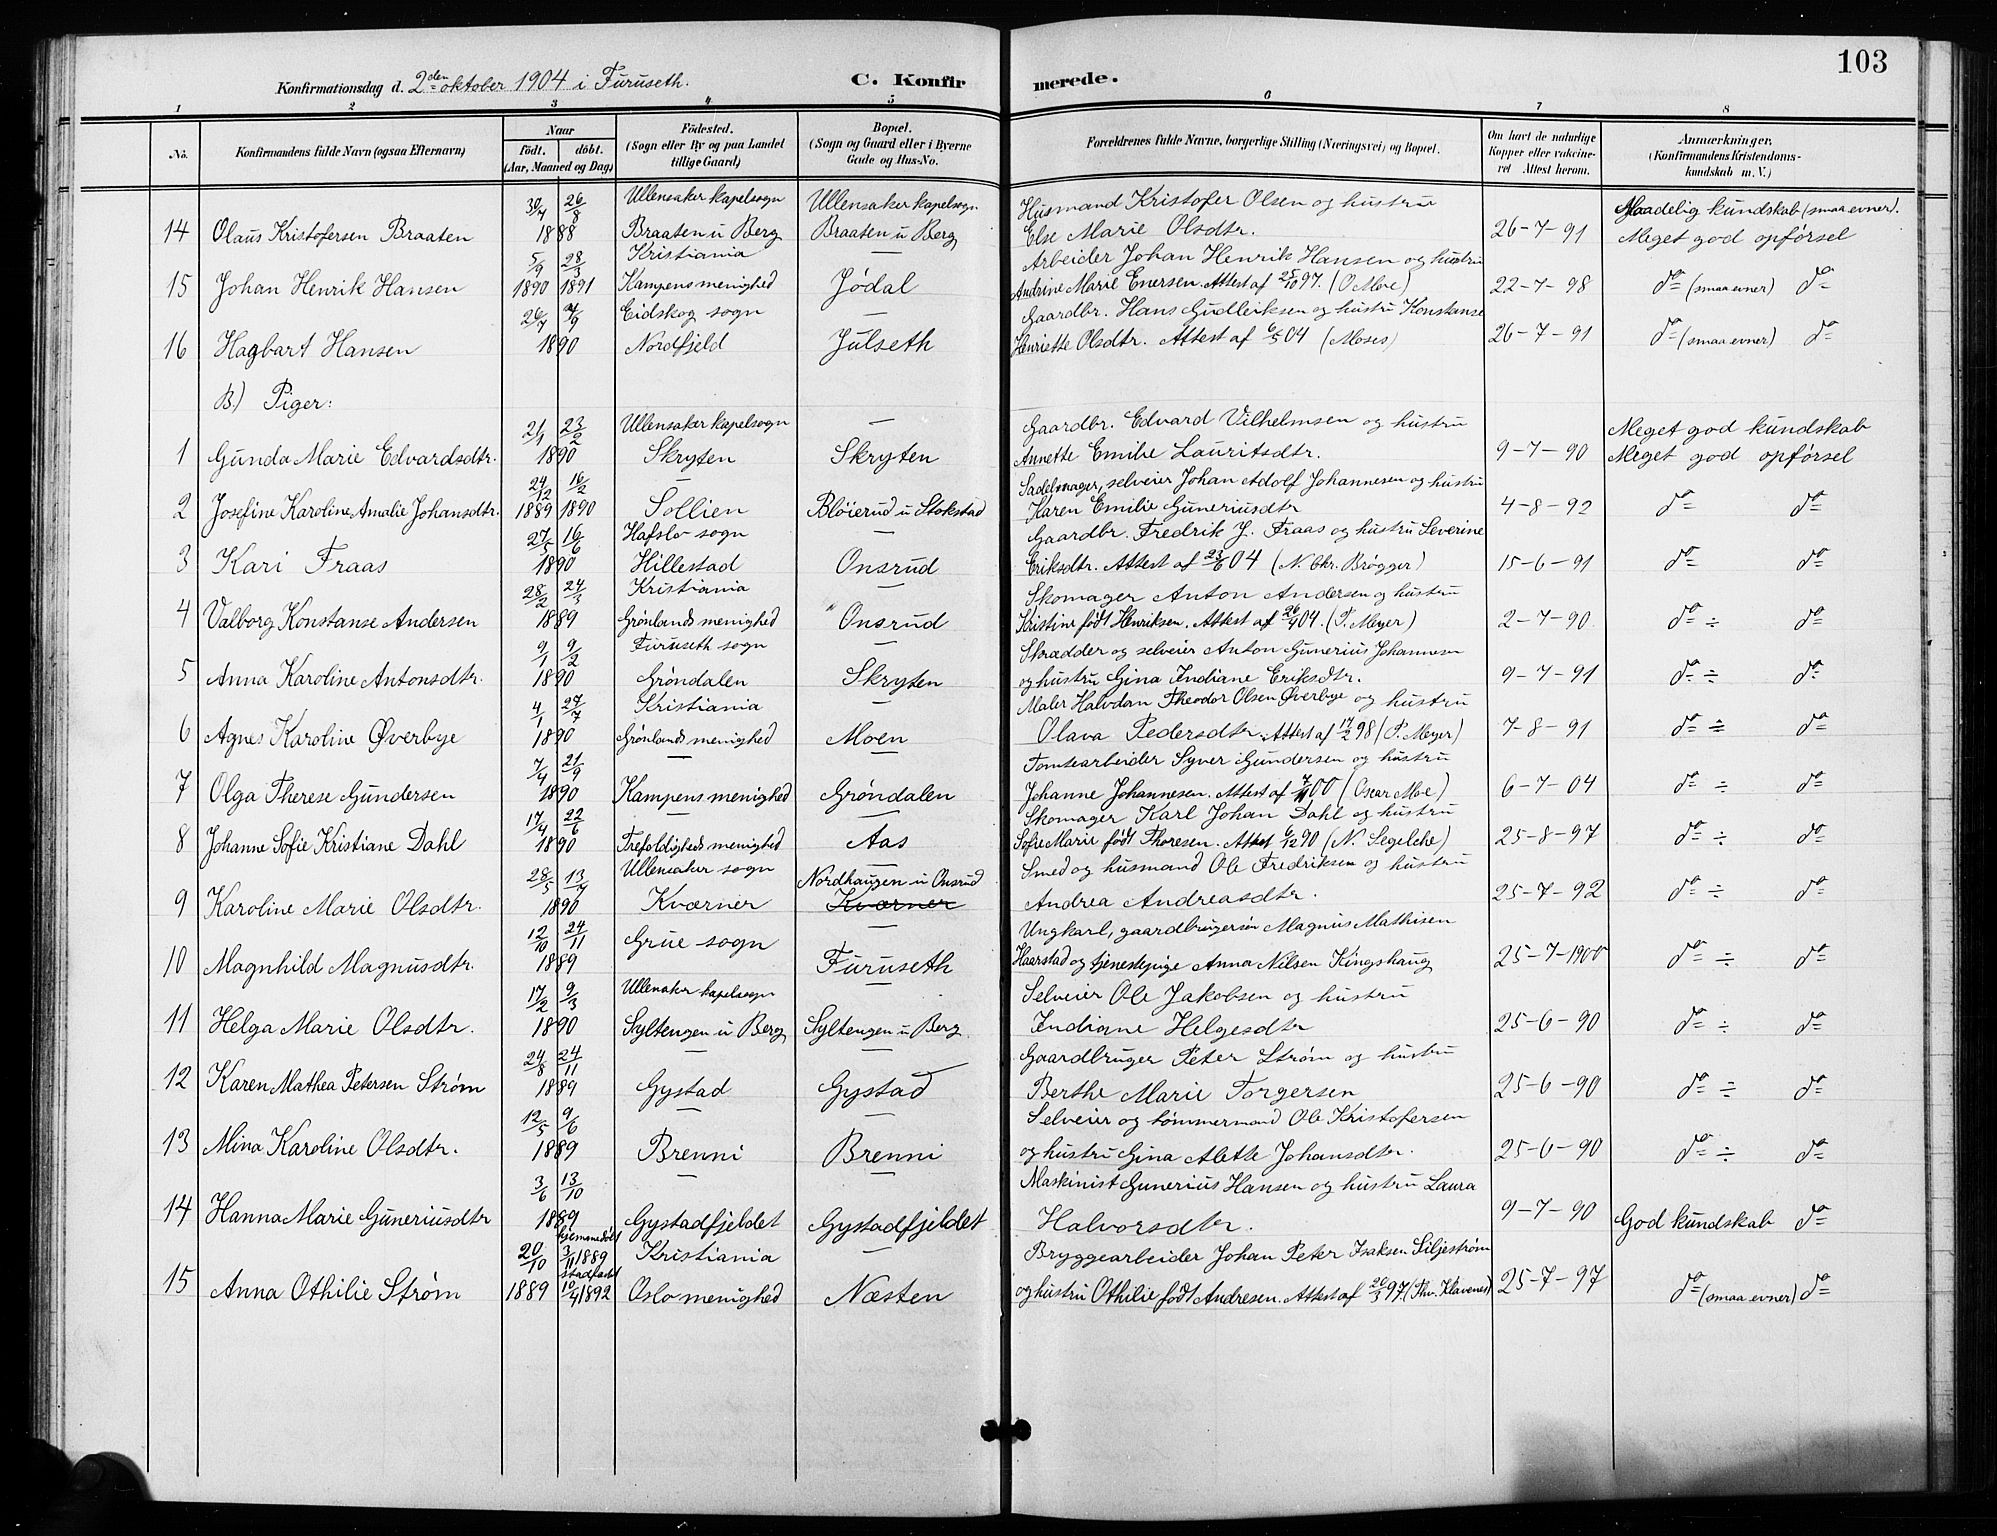 103
Konfirmationsdag d. 2den oktober 1904 i Furuseth. C. Konfirmerede.
1 2 3 4 5 6 7 8
No. Konfirmandens fulde Navn (ogsaa Efternavn) Naar Födt. döbt. (Aar, Maaned og Dag) Födested. (Sogn eller By og paa Landet tillige Gaard) Bopæl. (Sogn og Gaard eller i Byerne Gade og Hus-No. Forældrenes fulde Navne, borgerlige Stilling (Næringsvei) og Bopæl. Om havt de naturlige Kopper eller vakcineret Attest herom. Anmærkninger. (Konfirmandens Kristendomskundskab m. V.)
30/4 26/8 Ullensaker kapelsogn Ullensaker kapelsogn Husmand Kristofer Olsen og hustru Maadelig kundskab (smaa evner).
14 Olaus Kristofersen Braaten 1888 Braaten u Berg Braaten u Berg Else Marie Olsdtr. 26-7-91 Meget god opførsel
5/9 28/3 Kristiania — Arbeider Johan Henrik Hansen og hustru
15 Johan Henrik Hansen 1890 1891 Kampens menighed Jødal Andrine Marie Enersen. Attest af 25/10 97. (O Moe) 22-7-98 do (smaa evner) do
26/7 7/9 Eidskog sogn — Gaardbr. Hans Gudleiksen og hustru Konstanse
16 Hagbart Hansen 1890 Nordfjeld Julseth Henriette Olsdtr. Attest af 6/5 04 (Moses) 26-7-91 do (smaa evner) do
B.) Piger:
21/1 23/2 Ullensaker kapelsogn — Gaardbr. Edvard Vilhelmsen og hustru Meget god kundskab
1 Gunda Marie Edvardsdtr. 1890 Skryten Skryten Annette Emilie Lauritsdtr. 9-7-90 Meget god opførsel
24/12 16/2 — Sadelmager, selveier Johan Adolf Johannesen og hustru
2 Josefine Karoline Amalie Johansdtr. 1889 1890 Sollien Bløierud u Stokstad Karen Emilie Guneriusdtr 4-8-92 do do
27/5 16/6 Hafslo sogn — Gaardbr. Fredrik J. Fraas og hustru Severine
3 Kari Fraas 1890 Hillestad Onsrud Eriksdtr. Attest af 23/6 04 (N. Chr. Brøgger) 15-6-91 do do
28/2 24/3 Kristiania Skomager Anton Andersen og hustru
4 Valborg Konstanse Andersen 1889 Grønlands menighed Onsrud Kristine født Henriksen. Attest af 26/9 04. (P. Meyer) 2-7-90 do ÷ do
9/1 9/2 Furuseth sogn — Skrædder og selveier Anton Gunerius Johannesen
5 Anna Karoline Antonsdtr. 1890 Grøndalen Skryten og hustru Gina Indiane Eriksdtr. 9-7-91 do ÷ do
4/1 27/7 Kristiania — Maler Halvdan Theodor Olsen Øverbye og hustru
6 Agnes Karoline Øverbye 1890 Grønlands menighed Moen Olava Pedersdtr. Attest af 17/2 98 (P. Meyer) 7-8-91 do ÷ do
7/4 21/9 — — Tomtearbeider Syver Gundersen og hustru
7 Olga Therese Gundersen 1890 Kampens menighed Grøndalen Johanne Johannesen. Attest af 00 (Oscar Moe) 6-7-04 do ÷ do
17/4 22/6 — — Skomager Karl Johan Dahl og hustru
8 Johanne Sofie Kristiane Dahl 1890 Trefoldigheds menighed Aas Sofie Marie født Thoresen. Attest 6/12 90 (N. Segelcke) 25-8-97 do ÷ do
28/5 13/7 Ullensaker sogn Nordhaugen u Onsrud Smed og husmand Ole Fredriksen og hustru
9 Karoline Marie Olsdtr. 1890 Kværner Kværner Andrea Andreasdtr. 25-7-92 do ÷ do
12/10 24/11 Grue sogn Ungkarl, gaardbrugersøn Magnus Mathisen
10 Magnhild Magnusdtr. 1889 Furuseth Haarstad og tjenestepige Anna Nilsen Kingshaug 25-7-1900 do ÷ do
17/2 9/3 Ullensaker kapelsogn — Selveier Ole Jakobsen og hustru
11 Helga Marie Olsdtr. 1890 Syltengen u Berg Syltengen u Berg. Indiane Helgesdtr 25-6-90 do ÷ do
24/8 24/11 — — Gaardbruger Peter Strøm og hustru
12 Karen Mathea Petersen Strøm 1889 Gystad Gystad Berthe Marie Torgersen 25-6-90 do ÷ do
12/5 9/6 — Selveier og tømmermand Ole Kristofersen
13 Mina Karoline Olsdtr. 1889 Brenni Brenni og hustru Gina Alette Johansdtr. 25-6-90 do ÷ do
3/6 13/10 — Maskinist Gunerius Hansen og hustru Laura
14 Hanna Marie Guneriusdtr 1889 Gystadfjeldet Gystadfjeldet Halvorsdtr. 9-7-90 God kundskab do
20/10 hjemmedøbt 3/11 1889 stadfæst Kristiania — Bryggearbeider Johan Peter Isaksen Siljestrøm
15 Anna Othilie Strøm 1889 10/4 1892 Oslo menighed Næsten og hustru Othilie født Andresen. Attest af 20/3 97. (Thv. Klavenes) 25-7-97 do (smaa evner) do